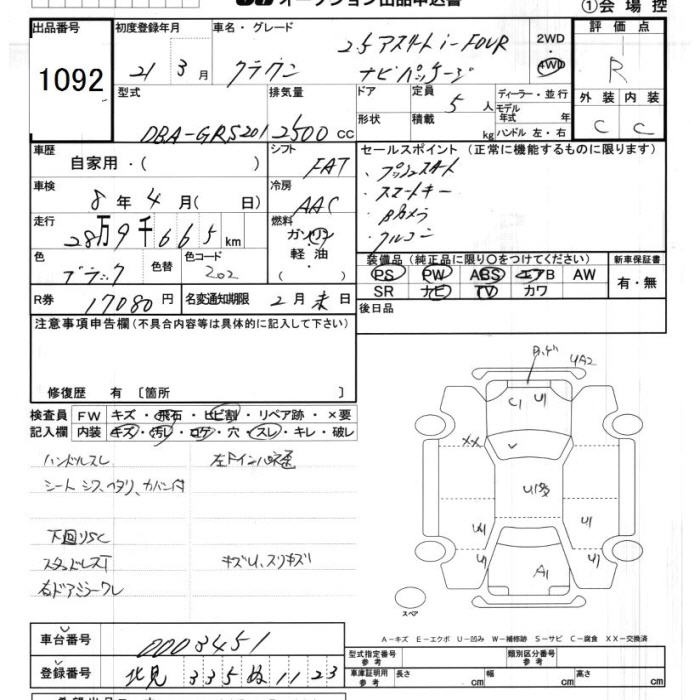 オークション出品申込書
①会場控
出品番号 1092
初度登録年月 21年 3月
車名・グレード クラウン 2.5アスリートi-FOUR ナビパッケージ
2WD 4WD
評価点 R
外装 C 内装 C
型式 DBA-GRS201
排気量 2500 cc
ドア 形状
定員 5人
積載 kg
ディーラー・並行
モデル年式 年
ハンドル 左・右
車歴 自家用・( )
シフト FAT
セールスポイント (正常に機能するものに限ります)
・プッシュスタート
・スマートキー
・Bカメラ
・クルコン
車検 8年 4月( 日)
冷房 AAC
走行 28万9千665km
燃料 ガソリン・軽油・( )
色 ブラック 色替
色コード 202
装備品 (純正品に限り○をつけてください)
PS PW ABS エアB AW
SR ナビ TV カワ
新車保証書 有・無
R券 17080円
名変通知期限 2月 末日
後日品
注意事項申告欄 (不具合内容等は具体的に記入して下さい)
修復歴 有 〔箇所 〕
検査員記入欄 FW キズ・飛石・ヒビ割・リペア跡・×要
内装 キズ・汚レ・コゲ・穴・スレ・キレ・破レ
ハンドルスレ
シート シワ、ヘタリ、カバー付
下回りSC
スタッドレスT
キズU、スリキズ
A2
U1
C1
XX
U1
U1
U1
U1
A1
スペア
A-キズ E-エクボ U-凹み W-補修跡 S-サビ C-腐食 XX-交換済
車台番号 0003451
登録番号 北見 335 ぬ 1123
型式指定番号 参考
類別区分番号 参考
車庫証明用 参考 長さ cm 幅 cm 高さ cm